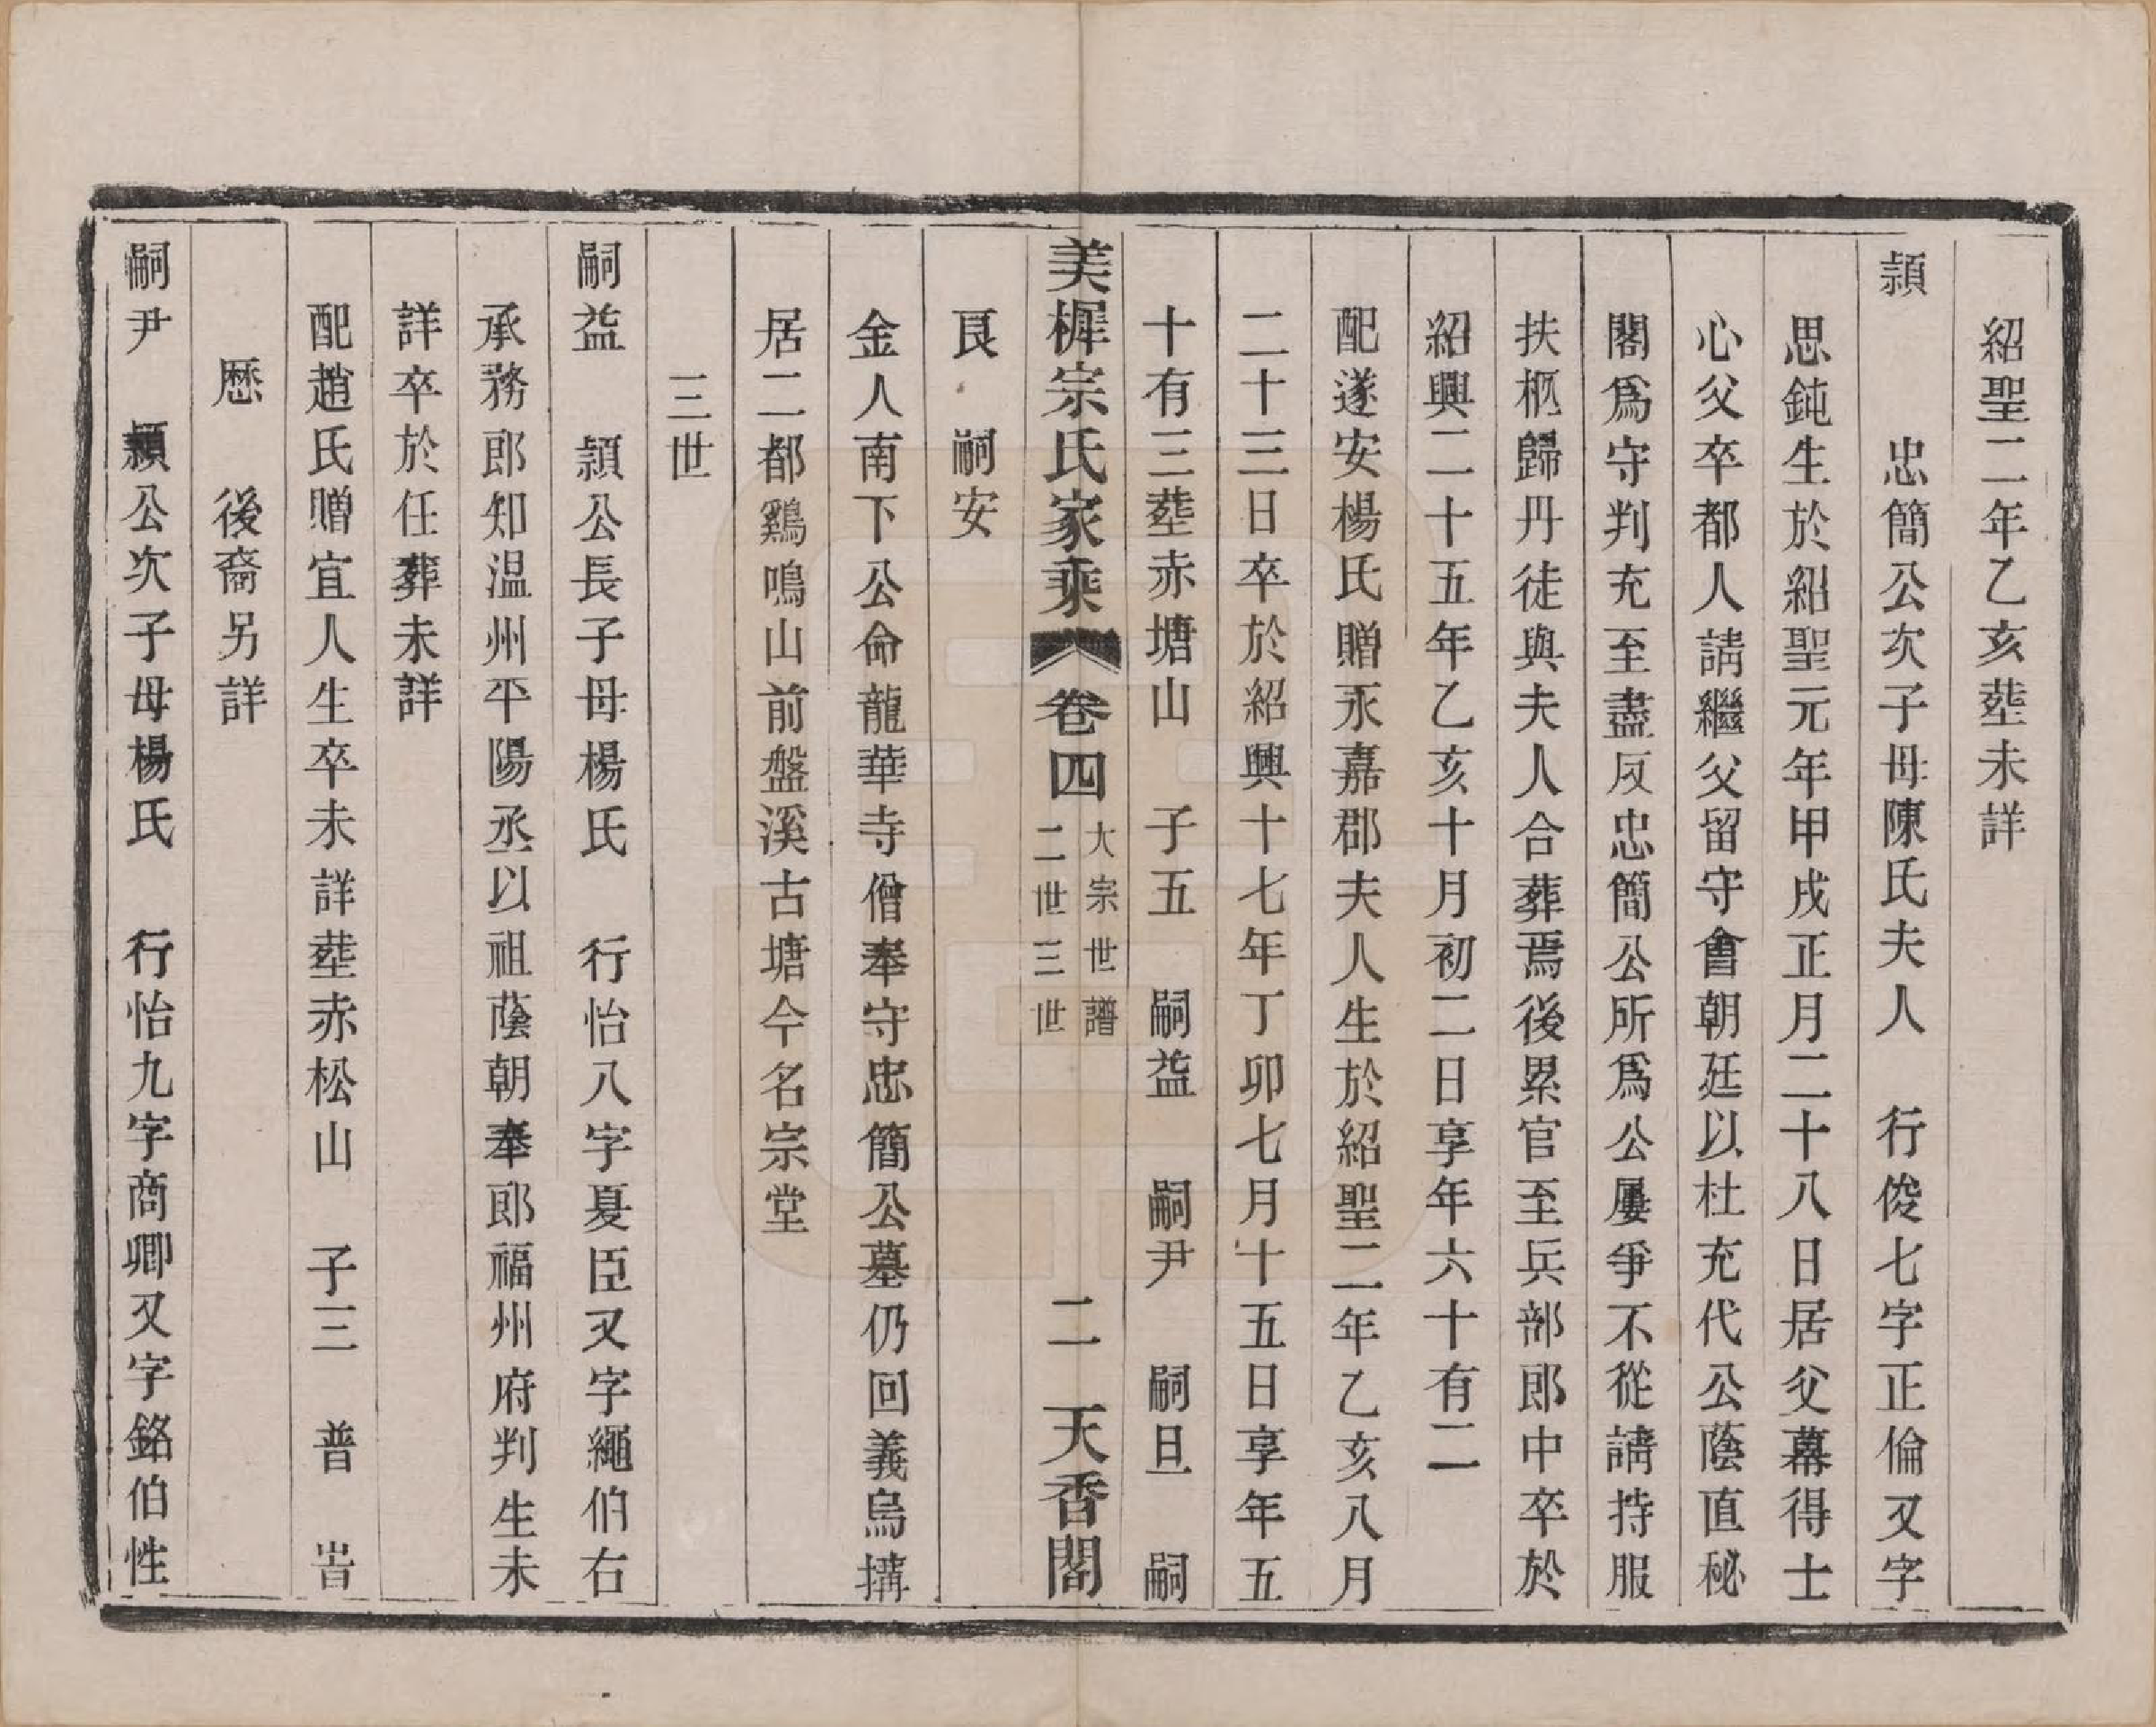 紹聖二年乙亥塟未詳
頴　忠簡公次子母陳氏夫人　行俊七字正倫又字
思鈍生於紹聖元年甲戌正月二十八日居父幕得士
心父卒都人請繼父留守會朝廷以杜充代公蔭直秘
閣爲守判充至盡反忠簡公所爲公屢爭不從請持服
扶柩歸丹徒與夫人合葬焉後累官至兵部郎中卒於
紹興二十五年乙亥十月初二日享年六十有二
配遂安楊氏贈永嘉郡夫人生於紹聖二年乙亥八月
二十三日卒於紹興十七年丁卯七月十五日享年五
十有三塟赤塘山　子五　嗣益　嗣尹　嗣旦　嗣
美樨宗氏家乘　卷四　大宗世譜　二世三世　二　天香閣
良　嗣安
金人南下公命龍華寺僧奉守忠簡公墓仍回義烏搆
居二都鷄鳴山前盤溪古塘今名宗堂
三世
嗣益　頴公長子母楊氏　行怡八字夏臣又字繩伯右
承務郎知温州平陽丞以祖蔭朝奉郎福州府判生未
詳卒於任葬未詳
配趙氏贈宜人生卒未詳塟赤松山　子三　普　旹
歷　後裔另詳
嗣尹　頴公次子母楊氏　行怡九字商卿又字銘伯性